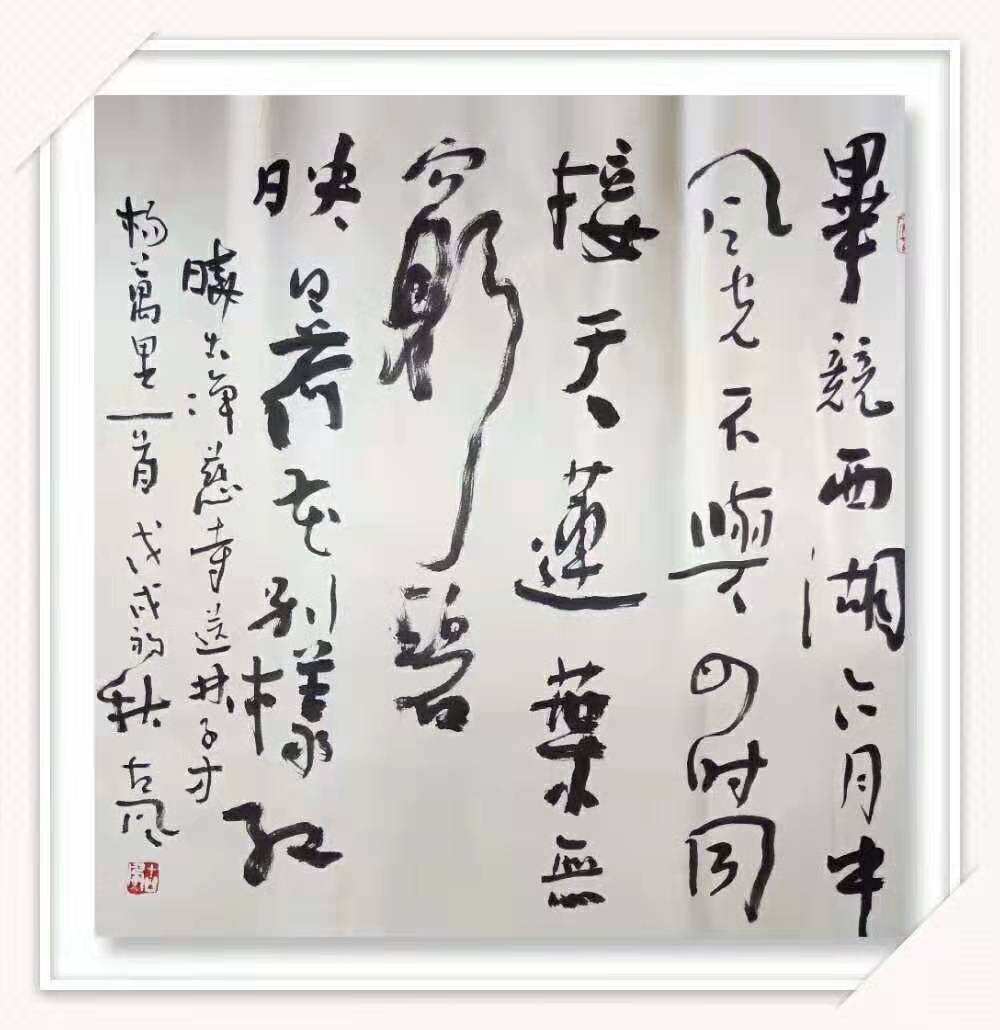 畢競西湖六月中
风光不與四时同
接天蓮葉無
窮碧
映日荷花别樣红
曉出淨慈寺送林子方
杨萬里一首 戊戌初秋 古风